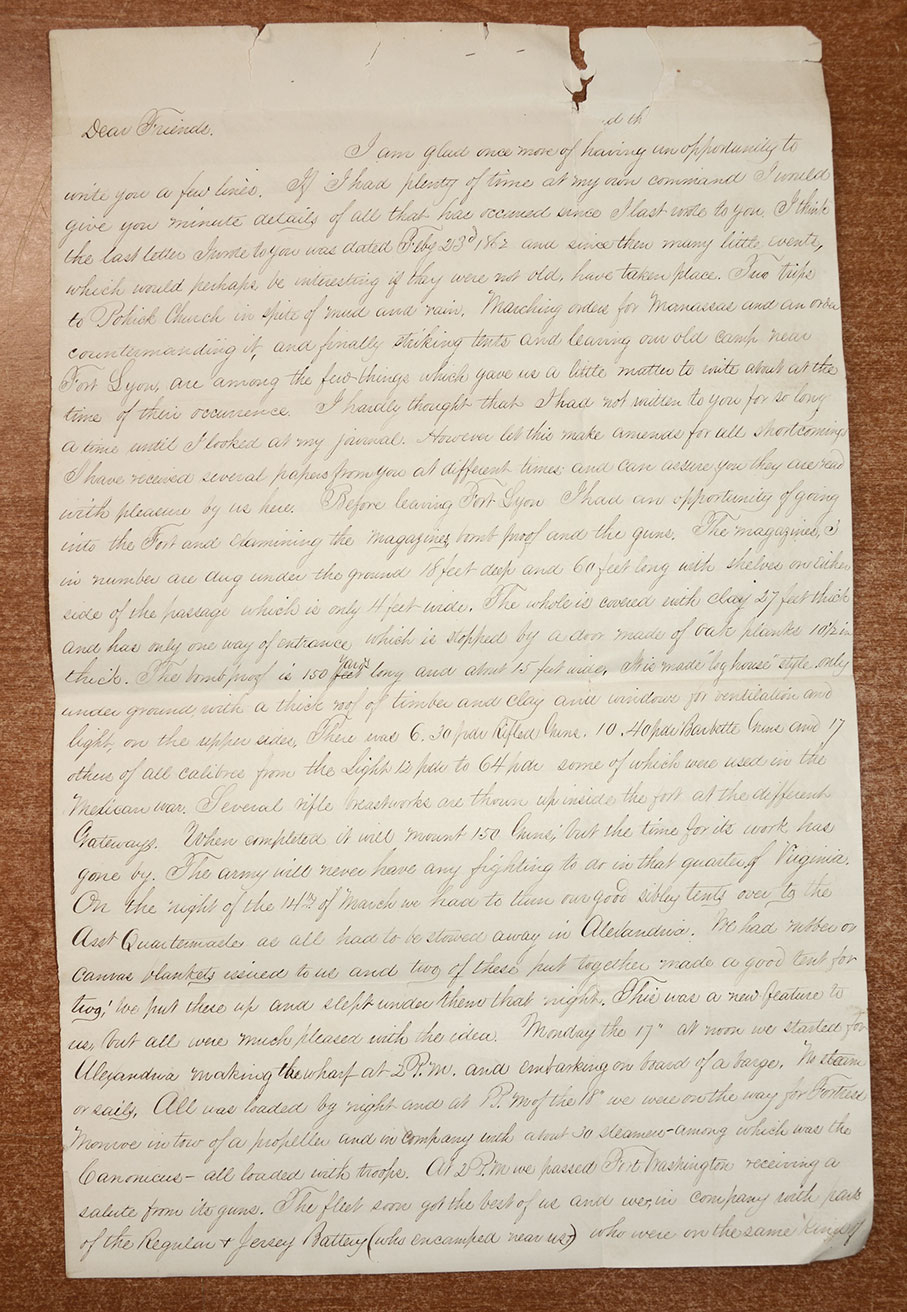 d th
Dear Friends.
I am glad once more of having an opportunity to
write you a few lines. If I had plenty of time at my own command I would
give you minute details of all that has occured since I last wrote to you. I think
the last letter I wrote to you was dated Feby 23d 1862 and since then many little events,
which would perhaps be interesting if they were not old, have taken place. Two trips
to Pohick Church in spite of mud and rain. Marching orders for Manassas and an order
countermanding it, and finally striking tents and leaving our old camp near
Fort Lyon, are among the few things which gave us a little matter to write about at the
time of their occurrence. I hardly thought that I had not written to you for so long
a time until I looked at my journal. However let this make amends for all shortcomings
I have received several papers from you at different times; and can assure you they are read
with pleasure by us here. Before leaving Fort Lyon I had an opportunity of going
into the Fort and examining the magazines, bomb proof and the guns. The magazines, 3
in number are dug under the ground 18 feet deep and 60 feet long with shelves on either
side of the passage which is only 4 feet wide. The whole is covered with clay 27 feet thick
and has only one way of entrance which is stopped by a door made of oak planks 10 1/2 in
thick. The bomb proof is 150 yards feet long and about 15 feet wide. It is made "log house" style only
under ground, with a thick roof of timber and clay and windows for ventilation and
light, on the upper sides. There was 6. 30 pdr Rifled Guns. 10. 40 pdr Barbette Guns and 17
others of all calibre from the Light 12 pdr to 64 pdr some of which were used in the
Mexican war. Several rifle breastworks are thown up inside the fort at the different
Gateways. When completed it will mount 150 Guns, but the time for its work has
gone by. The army will never have any fighting to do in that quarter of Virginia.
On the night of the 14th of March we had to turn our good sibley tents over to the
Asst Quartermaster as all had to be stowed away in Alexandria. We had rubber or
canvas blankets issued to us and two of these put together made a good tent for
two! We put these up and slept under them that night. This was a new feature to
us, but all were much pleased with the idea. Monday the 17" at noon we started for
Alexandria making the wharf at 2 P.M. and embarking on board of a barge. No steam
or sails. All was loaded by night and at P.M of the 18" we were on the way for Fortress
Monroe in tow of a propeller and in company with about 30 steamers - among which was the
Canonicus - all loaded with troops. At 2 P.M we passed Fort Washington receiving a
salute from its guns. The fleet soon got the best of us and we, in company with part
of the Regular & Jersey Battery (who encamped near us,) who were on the same kind of